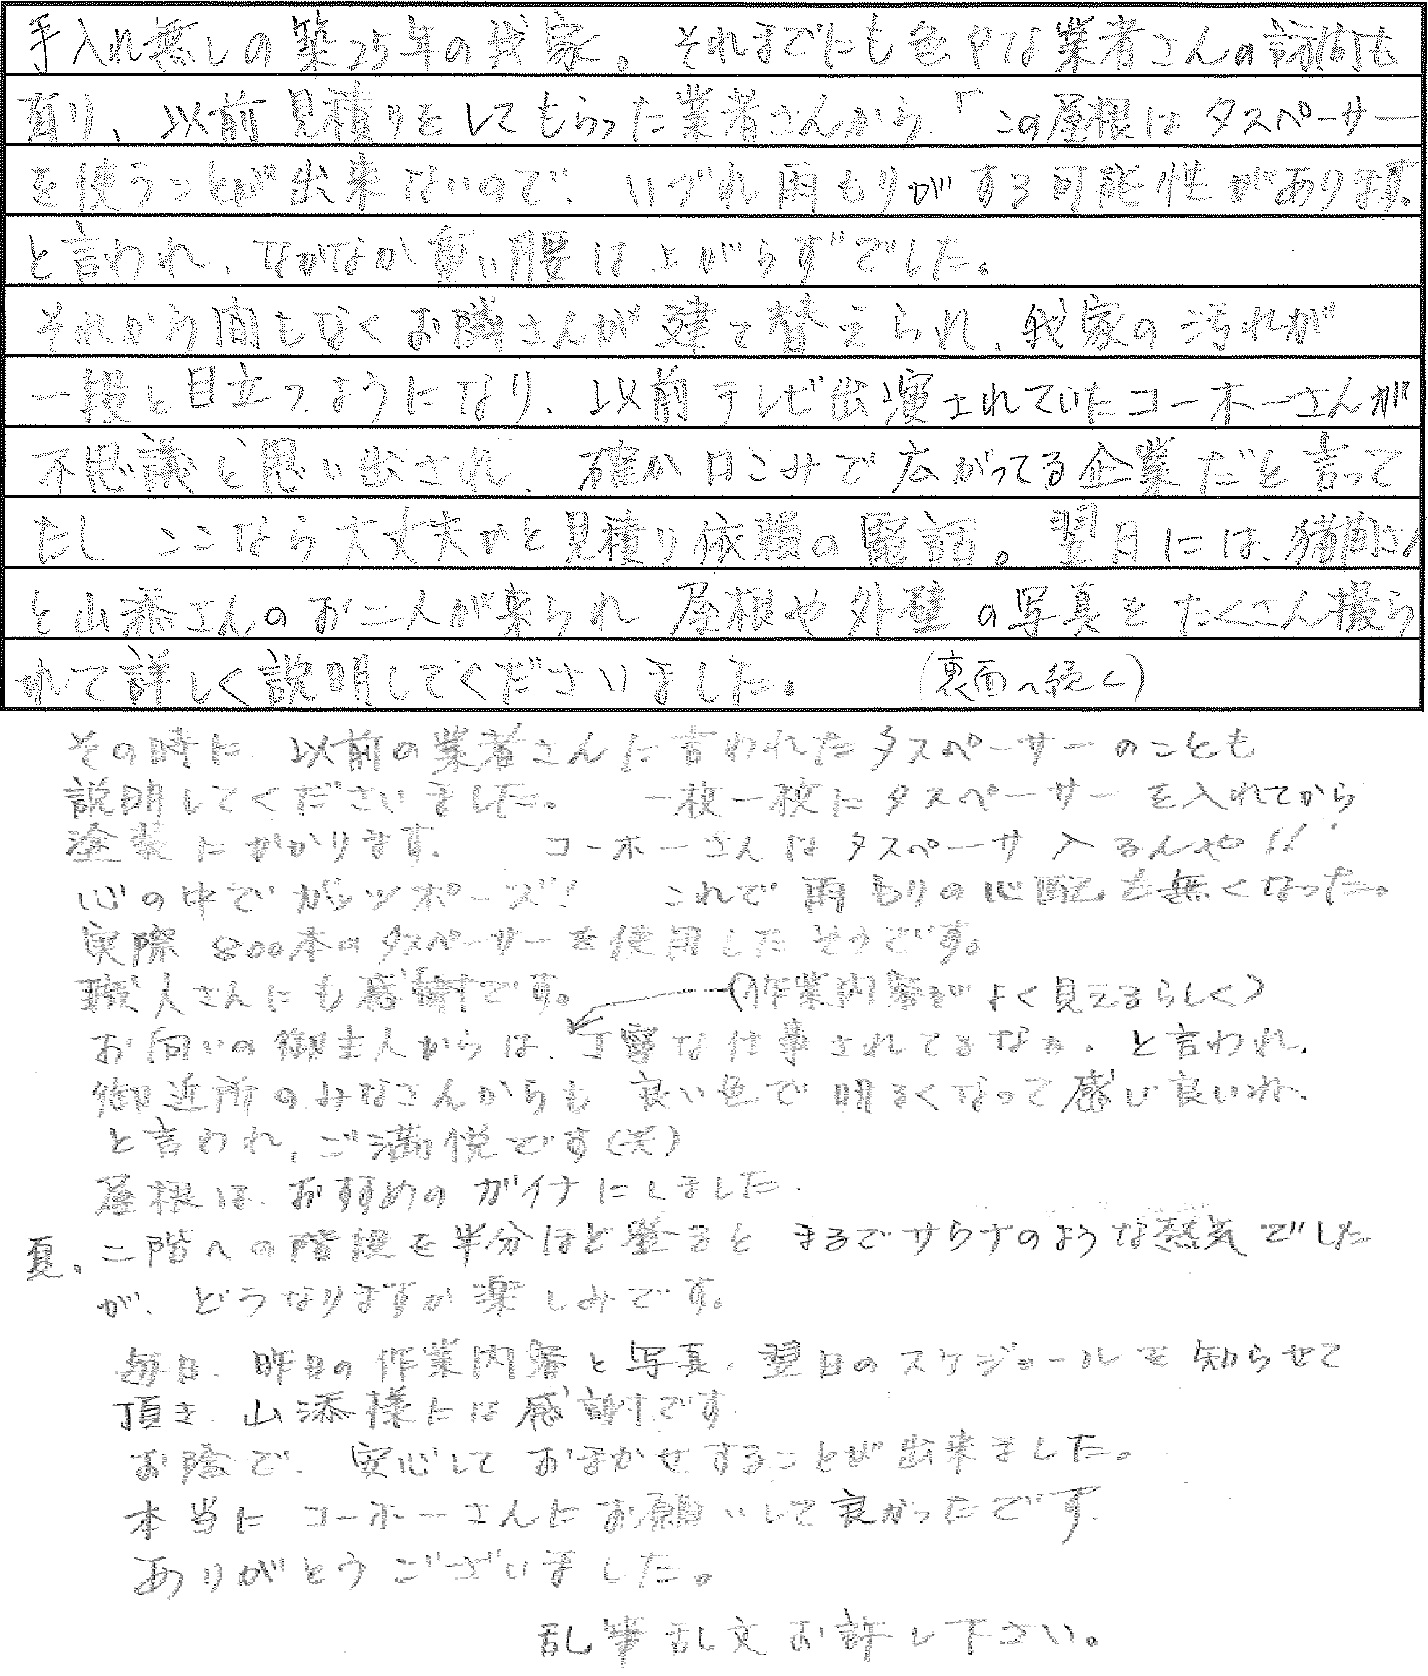 手入れ無しの築25年の我家。それまでにも色々な業者さんの訪問も
有り、以前見積りをしてもらった業者さんから「この屋根はタスペーサー
を使うことが出来ないので、いづれ雨もりがする可能性があります。
と言われ、なかなか重い腰は上がらずでした。
それから間もなくお隣さんが建て替えられ、我家の汚れが
一段と目立つようになり、以前テレビ出演されていたコーホーさんが
不思議と思い出され、確か口こみで広がってる企業だと言って
たし ここなら大丈夫かと見積り依頼の電話。翌日には、備前さん
と山添さんのお二人が来られ 屋根や外壁の写真をたくさん撮ら
れて詳しく説明してくださいました。 (裏面へ続く)
その時に 以前の業者さんに言われたタスペーサーのことも
説明してくださいました。 一枚一枚にタスペーサーを入れてから
塗装にかかります。 コーホーさんはタスペーサ入るんや!!
心の中でガッツポーズ! これで雨もりの心配も無くなった。
実際800本のタスペーサーを使用したそうです。
職人さんにも感謝です。 (作業内容がよく見えるらしく)
お向いの御主人からは、丁寧な仕事されてるなぁ。と言われ、
御近所のみなさんからも 良い色で 明るくなって感じ良いわ、
と言われ、ご満悦です(笑)
屋根は、おすすめのガイナにしました。
夏。二階への階段を半分ほど登ると まるでサウナのような熱気でした
が、どうなりますか楽しみです。
毎日、昨日の作業内容と写真、翌日のスケジュールを知らせて
頂き 山添様には感謝です
お陰で、安心しておまかせすることが出来ました。
本当にコーホーさんにお願いして良かったです。
ありがとうございました。
乱筆乱文お許し下さい。